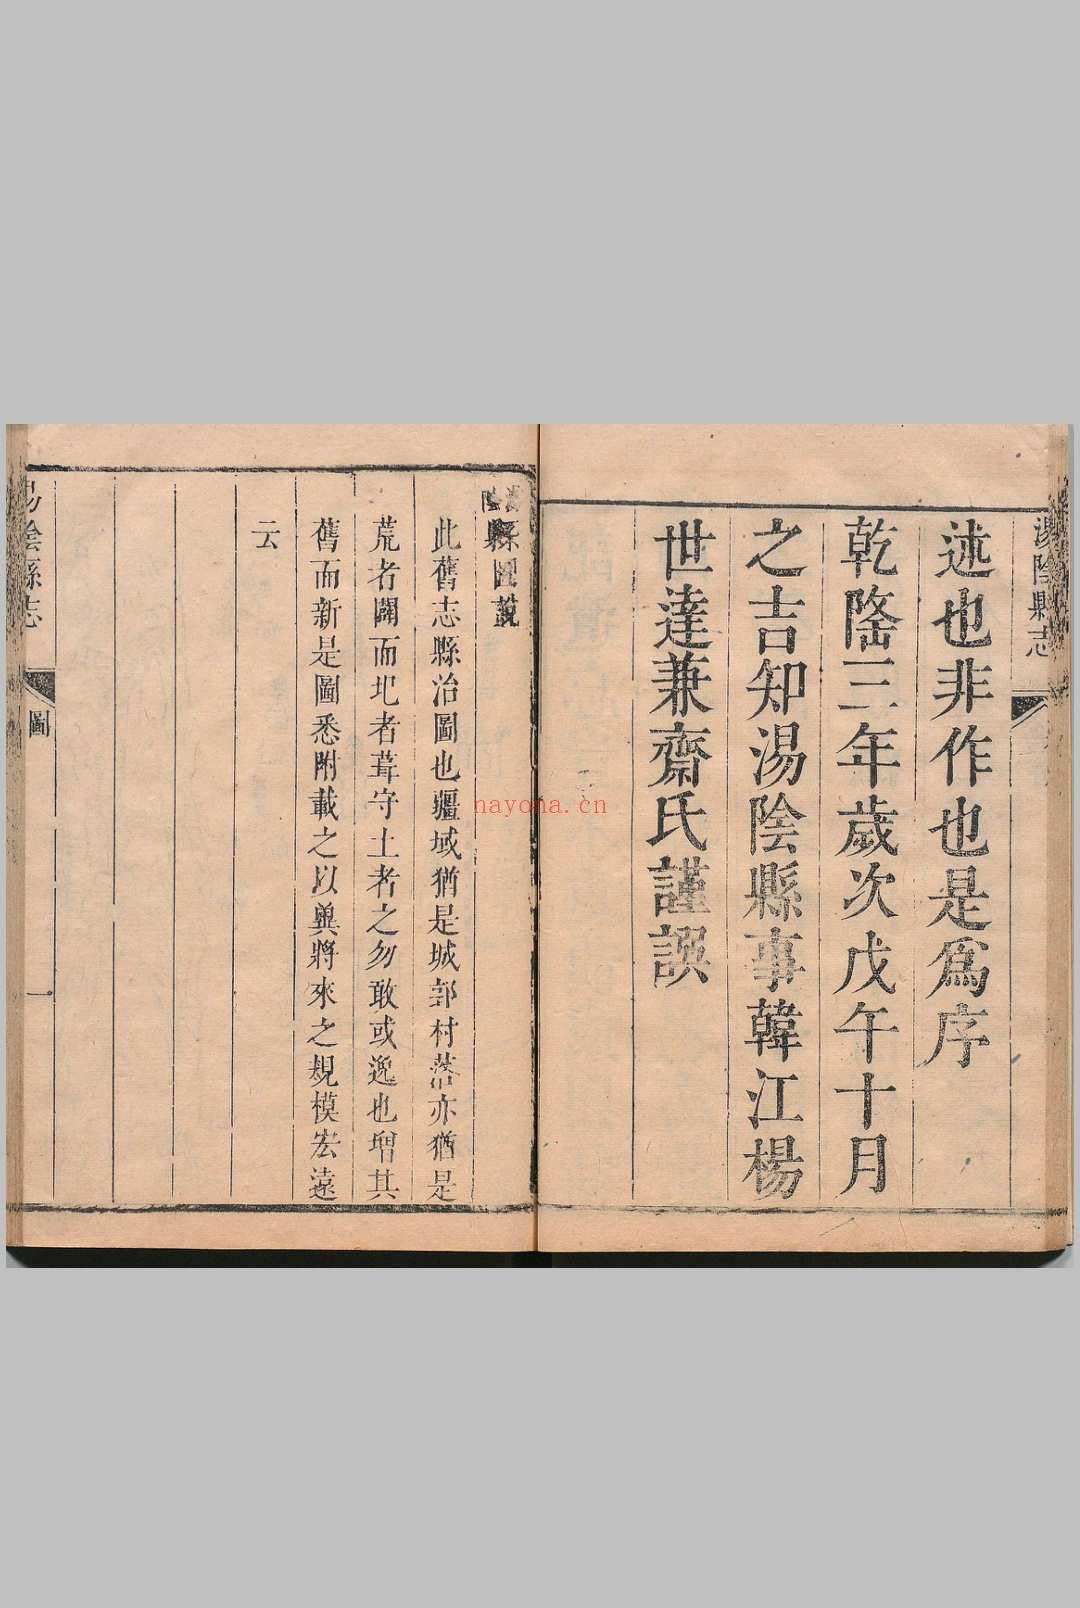 湯陰縣志
述也非作也是爲序
乾隆三年歲次戊午十月
之吉知湯陰縣事韓江楊
世達兼齋氏謹譔
縣圖說
此舊志縣治圖也疆域猶是城郭村落亦猶是
荒者闢而圮者葺守土者之勿敢或逸也增其
舊而新是圖悉附載之以兾將來之規模宏遠
云
陰縣志
圖
一
nayona.cn